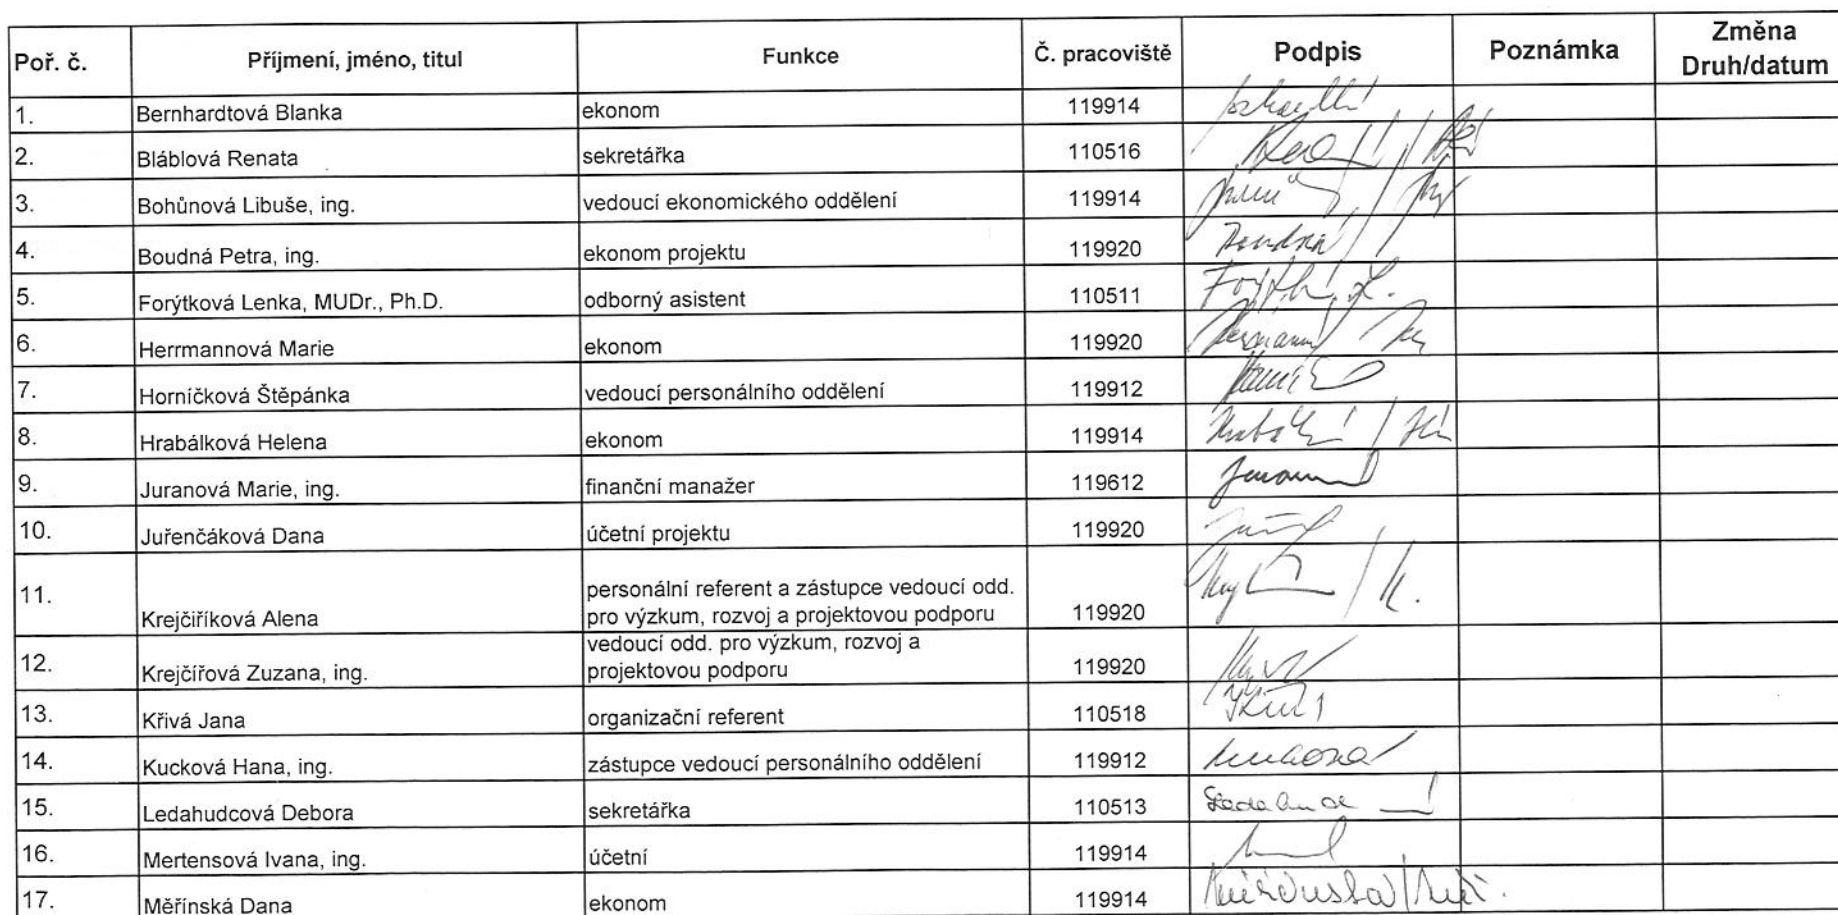 Poř. č. Příjmení, jméno, titul Funkce Č. pracoviště Podpis Poznámka Změna
Druh/datum
1. Bernhardtová Blanka ekonom 119914
2. Bláblová Renata sekretářka 110516
3. Bohůnová Libuše, ing. vedoucí ekonomického oddělení 119914
4. Boudná Petra, ing. ekonom projektu 119920 Boudná
5. Forýtková Lenka, MUDr., Ph.D. odborný asistent 110511
6. Herrmannová Marie ekonom 119920
7. Horníčková Štěpánka vedoucí personálního oddělení 119912
8. Hrabálková Helena ekonom 119914
9. Juranová Marie, ing. finanční manažer 119612
10. Juřenčáková Dana účetní projektu 119920
11. Krejčiříková Alena personální referent a zástupce vedoucí odd.
pro výzkum, rozvoj a projektovou podporu 119920
12. Krejčířová Zuzana, ing. vedoucí odd. pro výzkum, rozvoj a
projektovou podporu 119920
13. Křivá Jana organizační referent 110518
14. Kucková Hana, ing. zástupce vedoucí personálního oddělení 119912
15. Ledahudcová Debora sekretářka 110513
16. Mertensová Ivana, ing. účetní 119914
17. Měřínská Dana ekonom 119914